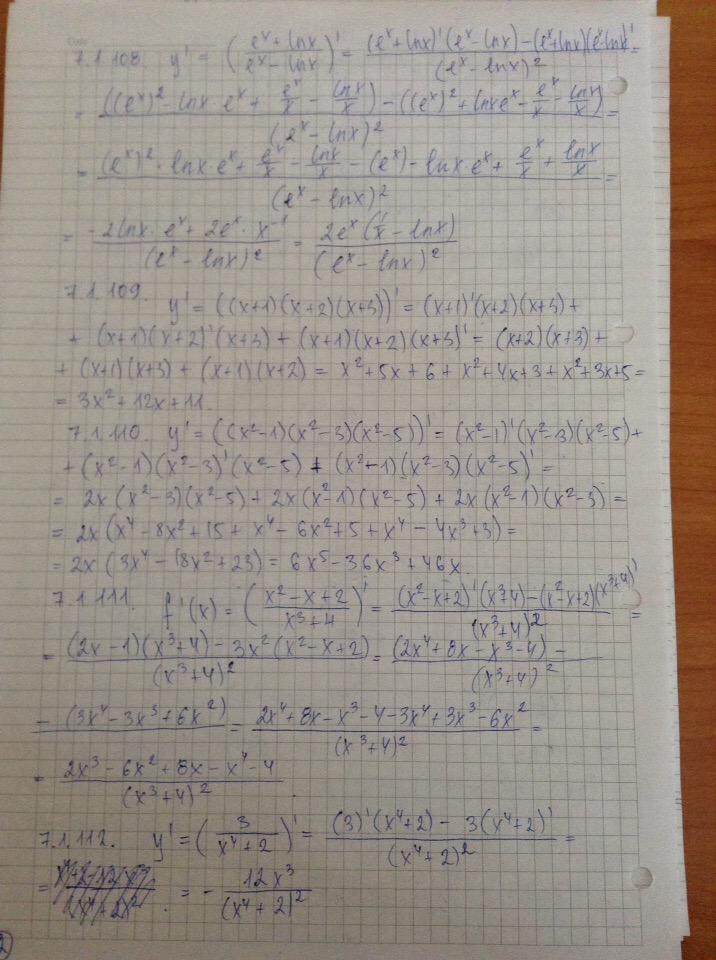 7.1.108 y' = ( (e^x + lnx)/(e^x - lnx) )' = ( (e^x + lnx)'(e^x - lnx) - (e^x + lnx)(e^x - lnx)' )/(e^x - lnx)^2 =
= ( ((e^x)^2 - lnx · e^x + e^x/x - lnx/x) - ((e^x)^2 + lnx e^x - e^x/x - lnx/x) )/(e^x - lnx)^2 =
= ( (e^x)^2 · lnx · e^x + e^x/x - lnx/x - (e^x) - lnx · e^x + e^x/x + lnx/x )/(e^x - lnx)^2 =
= ( -2lnx · e^x + 2e^x · x^-1 )/(e^x - lnx)^2 = ( 2e^x (1/x - lnx) )/(e^x - lnx)^2
7.1.109. y' = ((x+1)(x+2)(x+3))' = (x+1)'(x+2)(x+3) +
+ (x+1)(x+2)'(x+3) + (x+1)(x+2)(x+3)' = (x+2)(x+3) +
+ (x+1)(x+3) + (x+1)(x+2) = x^2+5x+6 + x^2+4x+3 + x^2+3x+5 =
= 3x^2+12x+11.
7.1.110. y' = ((x^2-1)(x^2-3)(x^2-5))' = (x^2-1)'(x^2-3)(x^2-5) +
+ (x^2-1)(x^2-3)'(x^2-5) + (x^2-1)(x^2-3)(x^2-5)' =
= 2x(x^2-3)(x^2-5) + 2x(x^2-1)(x^2-5) + 2x(x^2-1)(x^2-3) =
= 2x(x^4 - 8x^2 + 15 + x^4 - 6x^2 + 5 + x^4 - 4x^3 + 3) =
= 2x(3x^4 - 18x^2 + 23) = 6x^5 - 36x^3 + 46x.
7.1.111. f'(x) = ( (x^2-x+2)/(x^3+4) )' = ( (x^2-x+2)'(x^3+4) - (x^2-x+2)(x^3+4)' )/(x^3+4)^2 =
= ( (2x-1)(x^3+4) - 3x^2(x^2-x+2) )/(x^3+4)^2 = ( (2x^4+8x-x^3-4) - )/(x^3+4)^2
- (3x^4-3x^3+6x^2) = ( 2x^4+8x-x^3-4-3x^4+3x^3-6x^2 )/(x^3+4)^2 =
= ( 2x^3-6x^2+8x-x^4-4 )/(x^3+4)^2
7.1.112. y' = ( 3/(x^4+2) )' = ( (3)'(x^4+2) - 3(x^4+2)' )/(x^4+2)^2 =
= = - 12x^3/(x^4+2)^2
2